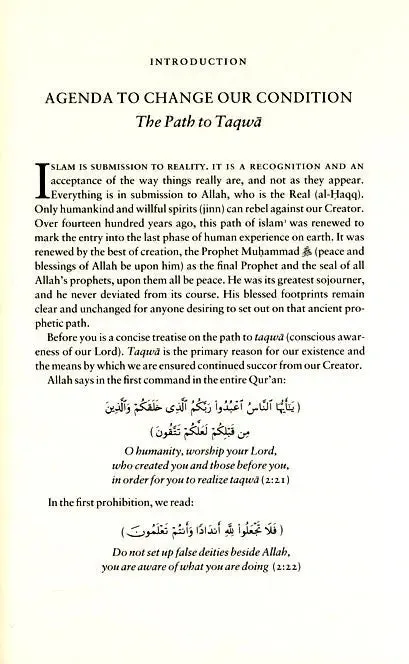 INTRODUCTION
AGENDA TO CHANGE OUR CONDITION
The Path to Taqwā
ISLAM IS SUBMISSION TO REALITY. IT IS A RECOGNITION AND AN
acceptance of the way things really are, and not as they appear.
Everything is in submission to Allah, who is the Real (al-Ḥaqq).
Only humankind and willful spirits (jinn) can rebel against our Creator.
Over fourteen hundred years ago, this path of islam¹ was renewed to
mark the entry into the last phase of human experience on earth. It was
renewed by the best of creation, the Prophet Muḥammad ﷺ (peace and
blessings of Allah be upon him) as the final Prophet and the seal of all
Allah's prophets, upon them all be peace. He was its greatest sojourner,
and he never deviated from its course. His blessed footprints remain
clear and unchanged for anyone desiring to set out on that ancient pro-
phetic path.
Before you is a concise treatise on the path to taqwā (conscious awar-
eness of our Lord). Taqwā is the primary reason for our existence and
the means by which we are ensured continued succor from our Creator.
Allah says in the first command in the entire Qur'an:
(يَٰٓأَيُّهَا ٱلنَّاسُ ٱعْبُدُوا۟ رَبَّكُمُ ٱلَّذِى خَلَقَكُمْ وَٱلَّذِينَ
مِن قَبْلِكُمْ لَعَلَّكُمْ تَتَّقُونَ)
O humanity, worship your Lord,
who created you and those before you,
in order for you to realize taqwā (2:21)
In the first prohibition, we read:
(فَلَا تَجْعَلُوا۟ لِلَّهِ أَندَادًا وَأَنتُمْ تَعْلَمُونَ)
Do not set up false deities beside Allah,
you are aware of what you are doing (2:22)